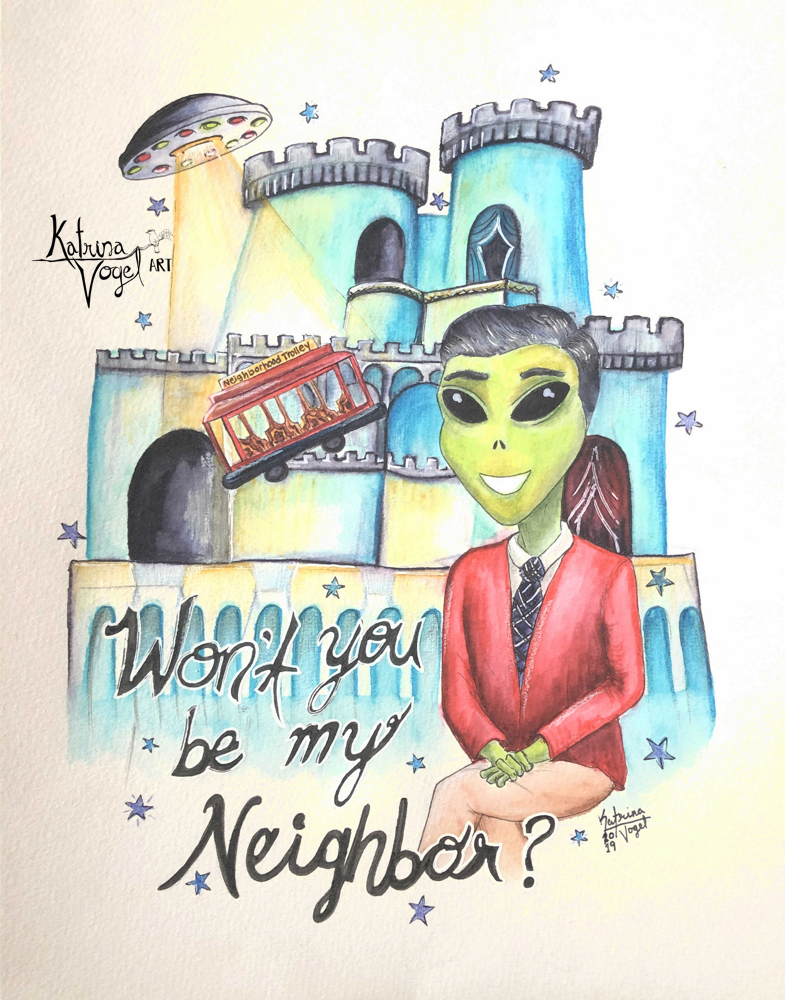 Katrina
Vogel ART
Neighborhood Trolley
Won't you
be my
Neighbor?
Katrina
20 Vogel
19